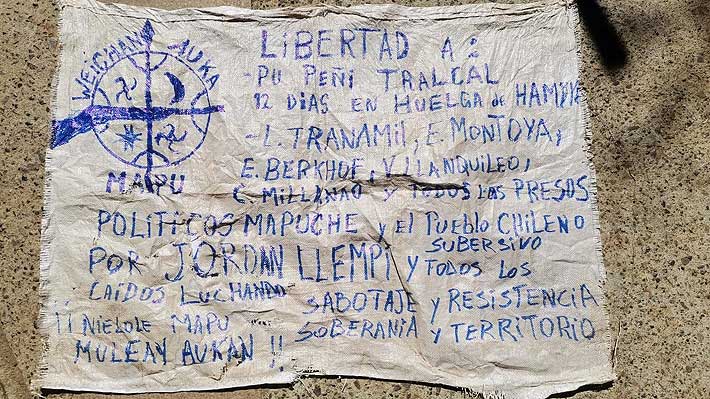 WEICHAN AUKA
MAPU
LIBERTAD A:
- PU PEÑI TRALCAL
12 DIAS EN HUELGA de HAMBRE
- L. TRANAMIL, E. MONTOYA,
E. BERKHOF, V. LLANQUILEO,
C. MILLANAO y TODOS LOS PRESOS
POLITICOS MAPUCHE y el PUEBLO CHILENO
SUBERSIVO
POR JORDAN LLEMPI y TODOS LOS
CAÍDOS LUCHANDO
SABOTAJE y RESISTENCIA
¡¡ NIELOLE MAPU
SOBERANIA y TERRITORIO
MULEAY AUKAN !!